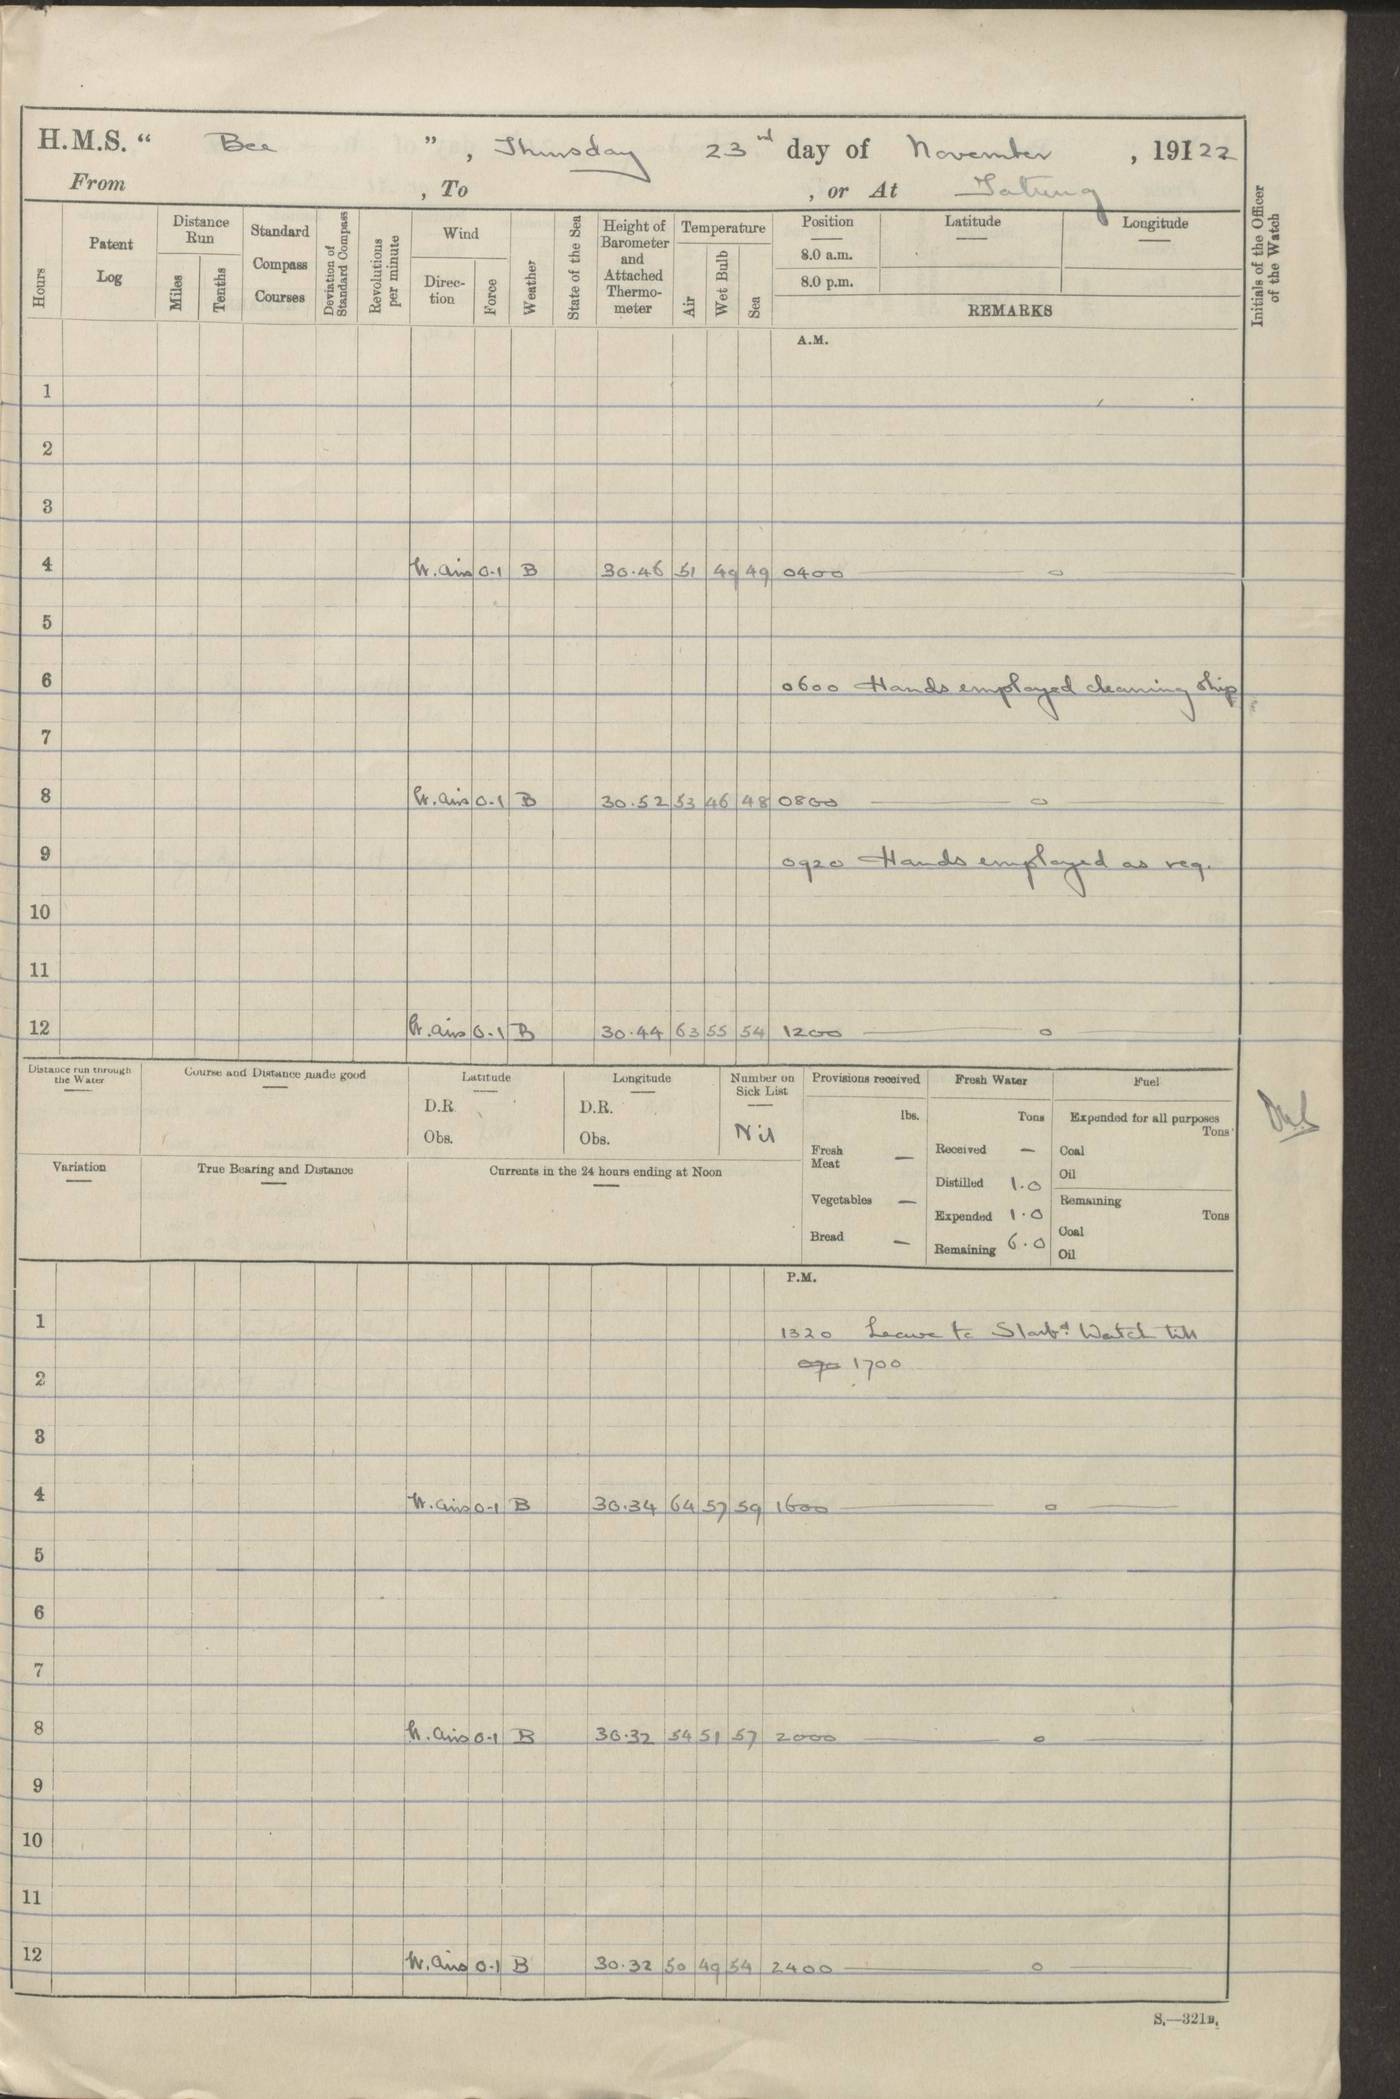 H.M.S. “ Bee ” , Thursday 23rd day of November , 191 22
From , To , or At Tatung
Hours
Patent Log
Distance Run
Miles
Tenths
Standard Compass Courses
Deviation of Standard Compass
Revolutions per minute
Wind
Direc-tion
Force
Weather
State of the Sea
Height of Barometer and Attached Thermo-meter
Temperature
Air
Wet Bulb
Sea
Position
8.0 a.m.
8.0 p.m.
Latitude
Longitude
REMARKS
Initials of the Officer of the Watch
A.M.
1
2
3
4 airs 0-1 B 30.46 51 49 49 0400 — o —
5
6 0600 Hands employed cleaning ship
7
8 airs 0-1 B 30.52 53 46 48 0800 — o —
9 0920 Hands employed as req.
10
11
12 airs 0-1 B 30.44 63 55 54 1200 — o —
Distance run through the Water
Course and Distance made good
Latitude
D.R.
Obs.
Longitude
D.R.
Obs.
Number on Sick List
Nil
Provisions received
lbs.
Fresh Meat —
Vegetables —
Bread —
Fresh Water
Tons
Received —
Distilled 1.0
Expended 1.0
Remaining 6.0
Fuel
Expended for all purposes
Tons
Coal
Oil
Remaining
Tons
Coal
Oil
Variation
True Bearing and Distance
Currents in the 24 hours ending at Noon
P.M.
1 1320 Leave to Starbd Watch till
1700
2
3
4 airs 0-1 B 30.34 64 57 59 1600 — o —
5
6
7
8 airs 0-1 B 30.32 54 51 57 2000 — o —
9
10
11
12 airs 0-1 B 30.32 50 49 54 2400 — o —
S.—321B.